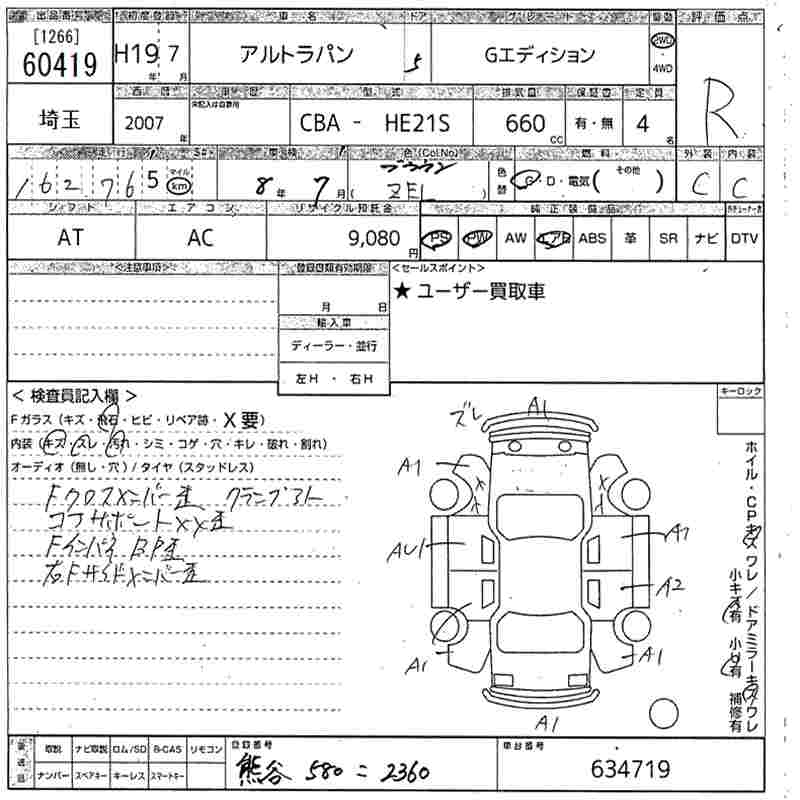 出品番号 初度登録 車名 ドア グレード 駆動 評価点
[1266]
60419 H19年 7月 アルトラパン 5 Gエディション 2WD・4WD R
西暦 車歴 型式 排気量 保証書 定員
未記入は自家用
埼玉 2007年 CBA - HE21S 660cc 有・無 4名
走行 車検 色(Col No) 燃料 外装 内装
162765 マイル km 8年 7月 ブラウン (ZEL) 色替 G・D・電気( その他 ) C C
シフト エアコン リサイクル預託金 純正装備品
AT AC 9,080円 PS PW AW エアB ABS 革 SR ナビ DTV
<注意事項> 登録書類有効期限 <セールスポイント>
月 日 ★ ユーザー買取車
輸入車
ディーラー・並行
左H ・ 右H
< 検査員記入欄 > キーロック
Fガラス (キズ・飛石・ヒビ・リペア跡・X要)
内装 (キズ・スレ・汚れ・シミ・コゲ・穴・キレ・破れ・割れ)
オーディオ (無し・穴) / タイヤ (スタッドレス)
Fクロスメンバー歪
コアサポートXX歪
Fインパネ
右Fサイドメンバー歪
ズレ A1
A1
AU1
A2
A1 A1
A1
ホイル・CPキズ ワレ / ドアミラーキズ/ワレ
小キズ有 小U有 補修有
取説 ナビ取説 ロム/SD B-CAS リモコン 登録番号 車台番号
ナンバー スペアキー キーレス スマートキー 熊谷 580 = 2360 634719